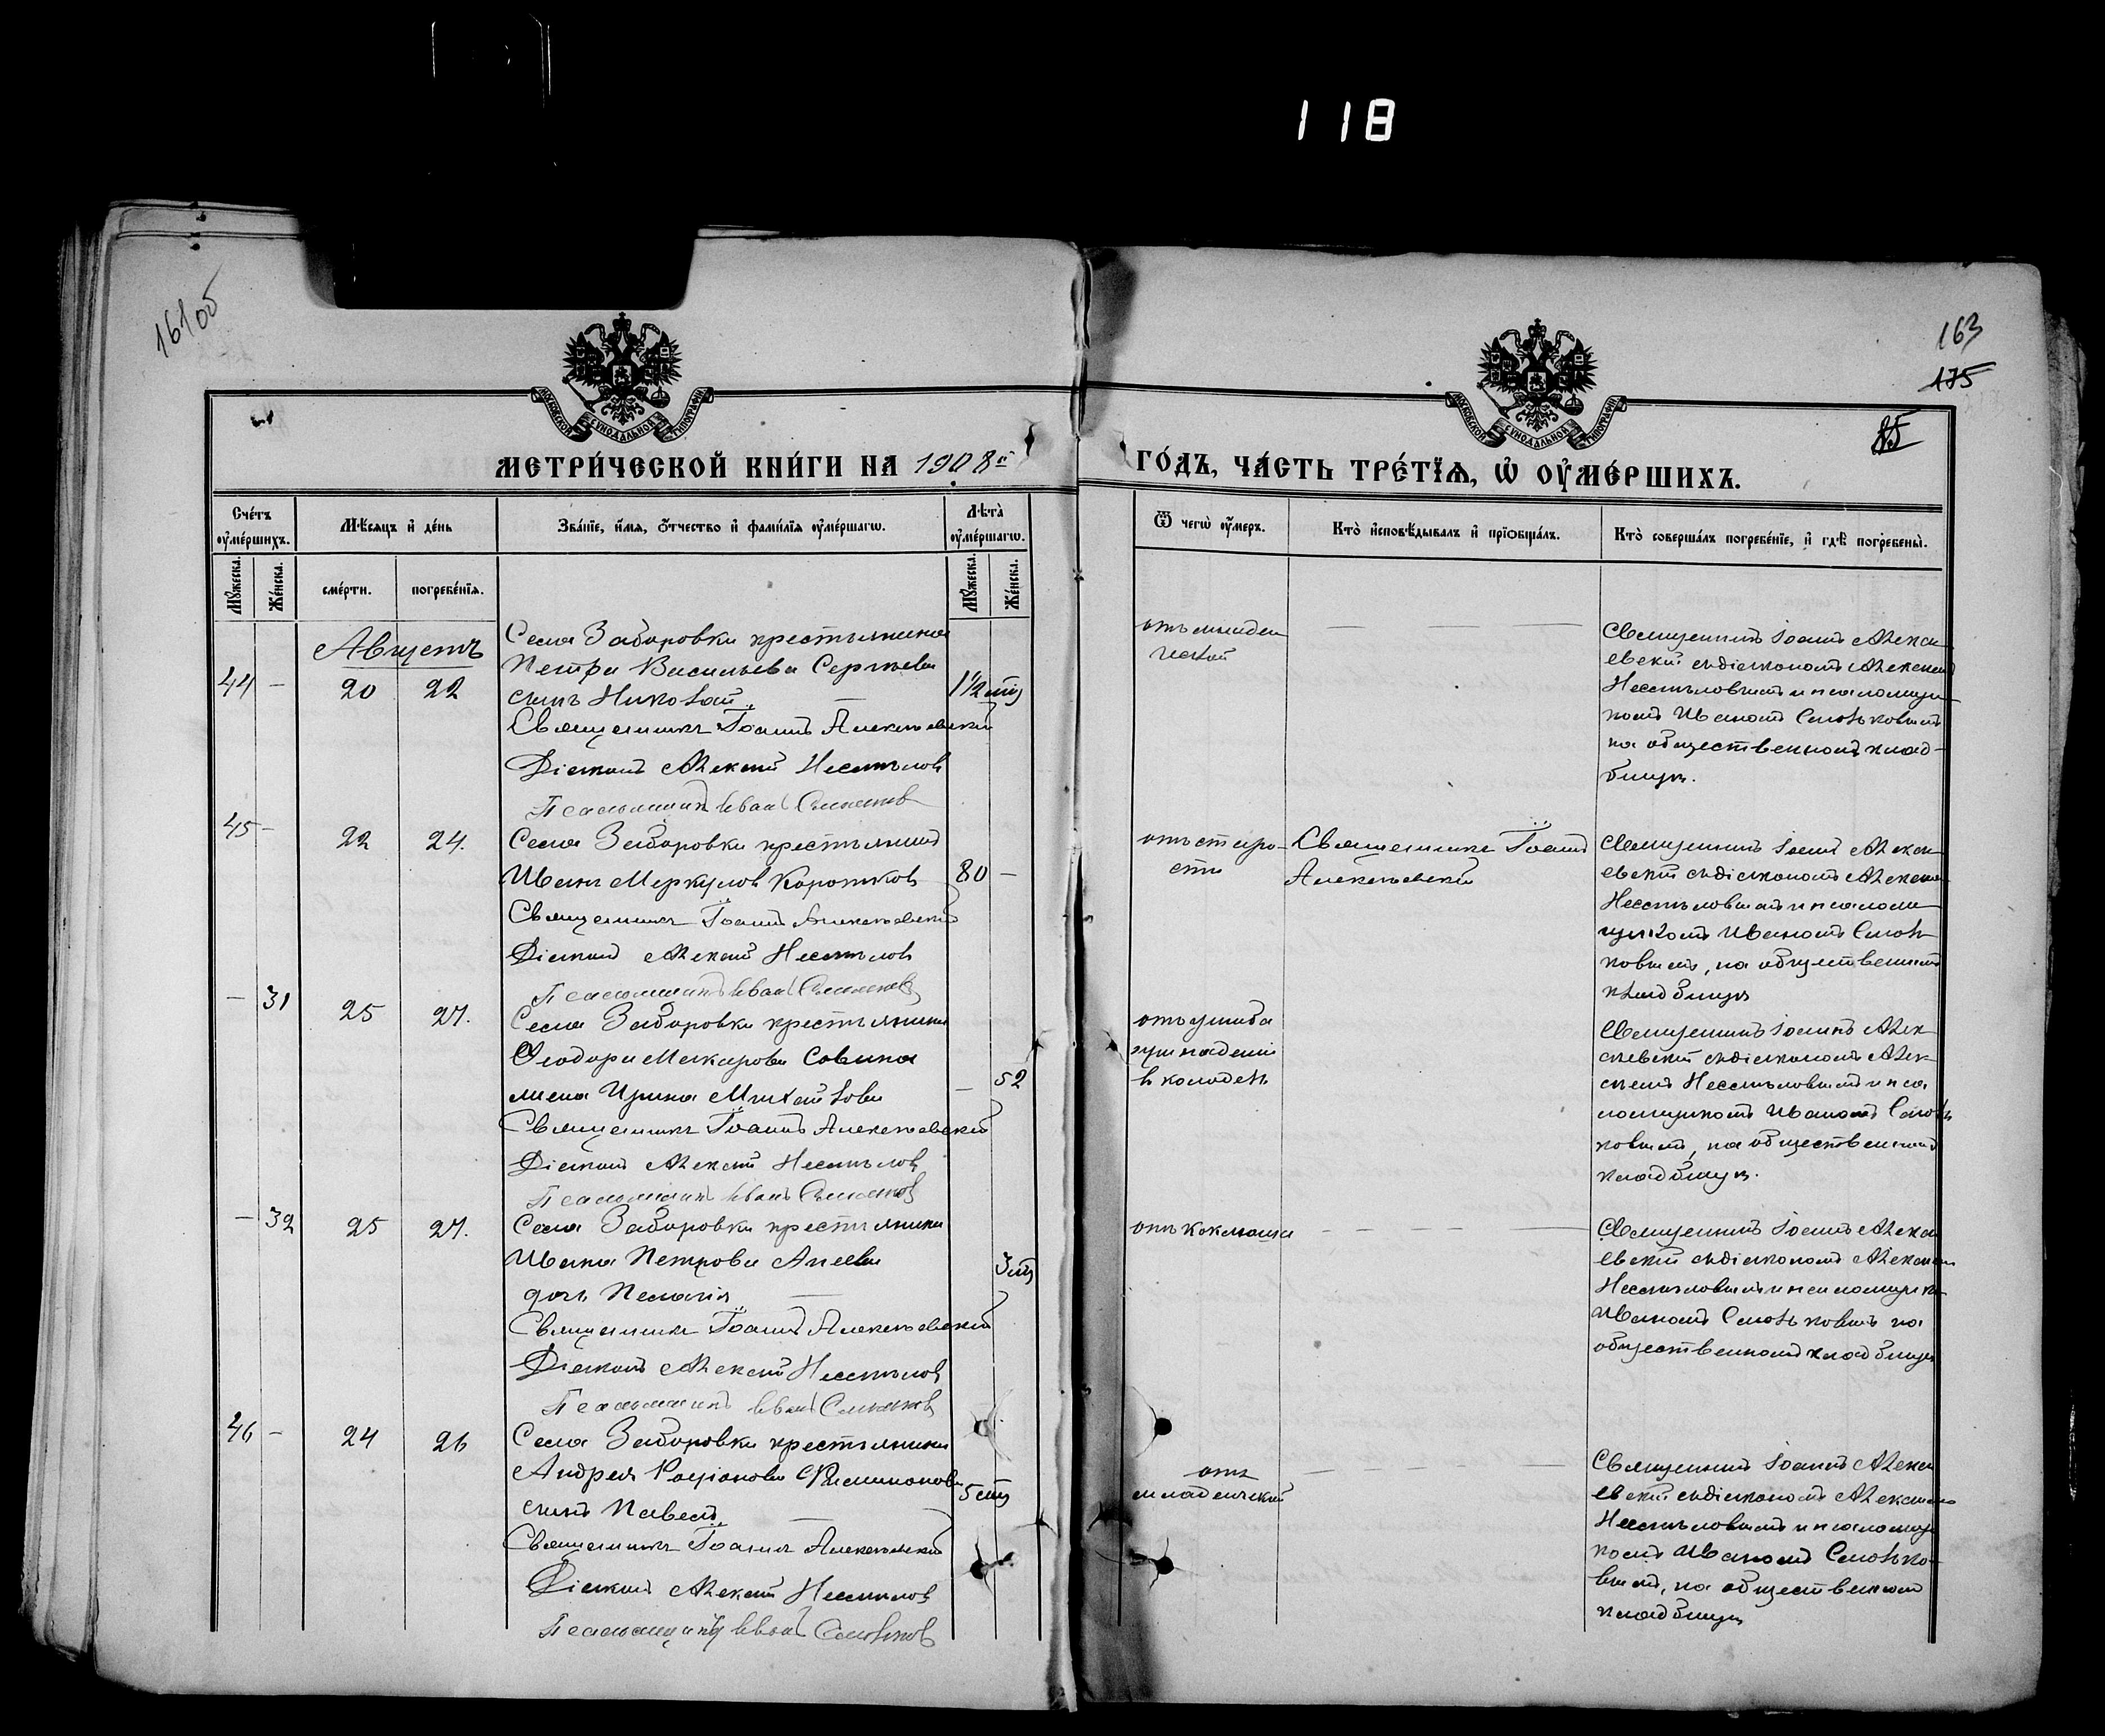 118
161об
163
175
85
МОСКОВСКОЙ СУНОДАЛЬНОЙ ТИПОГРАФІИ
МОСКОВСКОЙ СУНОДАЛЬНОЙ ТИПОГРАФІИ
МЕТРИ́ЧЕСКОЙ КНИ́ГИ НА 1908й
ГО́ДЪ, ЧА́СТЬ ТРЕ́ТЇѦ, Ѽ ОУ҆МЕ́РШИХЪ.
Сче́тъ оу҆ме́ршихъ.
Мѣ́сѧцъ и҆ де́нь
Зва́нїе, и҆́мѧ, ѻ҆́тчество и҆ фами́лїѧ оу҆ме́ршагѡ.
Лѣ́та оу҆ме́ршагѡ.
Ѿ чегѡ̀ оу҆́меръ.
Кто̀ и҆сповѣ́дывалъ и҆ прїѡбща́лъ.
Кто̀ соверша́лъ погребе́нїе, и҆ гдѣ̀ погребены̀.
Мꙋ́жеска.
Же́нска.
сме́рти.
погребе́нїѧ.
Мꙋ́жеска.
Же́нска.
Августъ
44 - 20 22
Села Заборовки крестьянина
Петра Васильева Сергѣева
сынъ Николай.
1 1/2 мц
Священникъ Іоаннъ Алексѣевскій
Діаконъ Алексѣй Несмѣловъ
Псаломщикъ Иванъ Смольковъ
отъ младен
ческой
Священникъ Іоаннъ Алексѣ
евскій съ діакономъ Алексѣемъ
Несмѣловымъ и псаломщи
комъ Иваномъ Смольковымъ
на общественномъ клад-
бищѣ.
45 - 22 24.
Села Заборовки крестьянинъ
Иванъ Меркуловъ Коротковъ
80 -
Священникъ Іоаннъ Алексѣевскій
Діаконъ Алексѣй Несмѣловъ
Псаломщикъ Иванъ Смольковъ
отъ старо-
сти
Священникъ Іоаннъ
Алексѣевскій
Священникъ Іоаннъ Алексѣ
евскій съ діакономъ Алексѣемъ
Несмѣловымъ и псалом
щикомъ Иваномъ Смоль
ковымъ, на общественномъ
кладбищѣ
- 31 25 27.
Села Заборовки крестьянина
Ѳеодора Макарова Совина
жена Ирина Михайлова
- 52
Священникъ Іоаннъ Алексѣевскій
Діаконъ Алексѣй Несмѣловъ
Псаломщикъ Иванъ Смольковъ
отъ ушиба
при паденіи
въ колодезь
Священникъ Іоаннъ Алек
сѣевскій съ діакономъ Алек-
сѣемъ Несмѣловымъ и пса
ломщикомъ Иваномъ Смоль
ковымъ, на общественномъ
кладбищѣ.
- 32 25 27.
Села Заборовки крестьянина
Ивана Петрова
дочь Пелагія
3 мц
Священникъ Іоаннъ Алексѣевскій
Діаконъ Алексѣй Несмѣловъ
Псаломщикъ Иванъ Смольковъ
отъ коклюша
Священникъ Іоаннъ Алексѣ
евскій съ діакономъ Алексѣемъ
Несмѣловымъ и псаломщико
Иваномъ Смольковымъ на
общественномъ кладбищѣ
46 - 24 26
Села Заборовки крестьянина
Андрея Родіонова Филимонова
сынъ Павелъ
5 мц
Священникъ Іоаннъ Алексѣевскій
Діаконъ Алексѣй Несмѣловъ
Псаломщикъ Иванъ Смольковъ
отъ
младенческой
Священникъ Іоаннъ Алексѣ
евскій съ діакономъ Алексѣемъ
Несмѣловымъ и псаломщи
комъ Иваномъ Смолько-
вымъ, на общественномъ
кладбищѣ